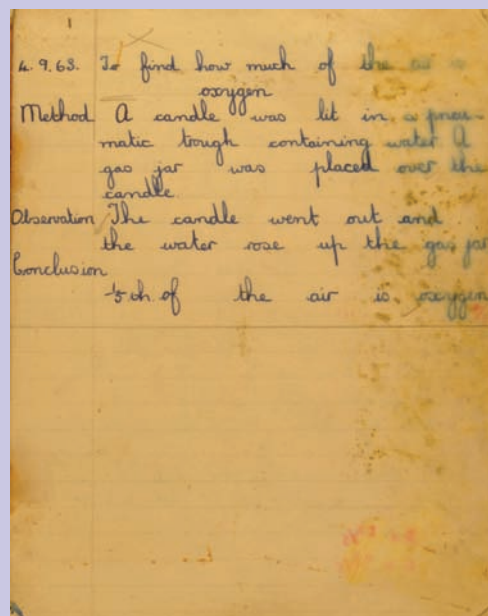 1
4.9.63. To find how much of the air is
oxygen
Method A candle was lit in a pneu-
matic trough containing water A
gas jar was placed over the
candle.
Observation The candle went out and
the water rose up the gas jar
Conclusion
1/5 th. of the air is oxygen